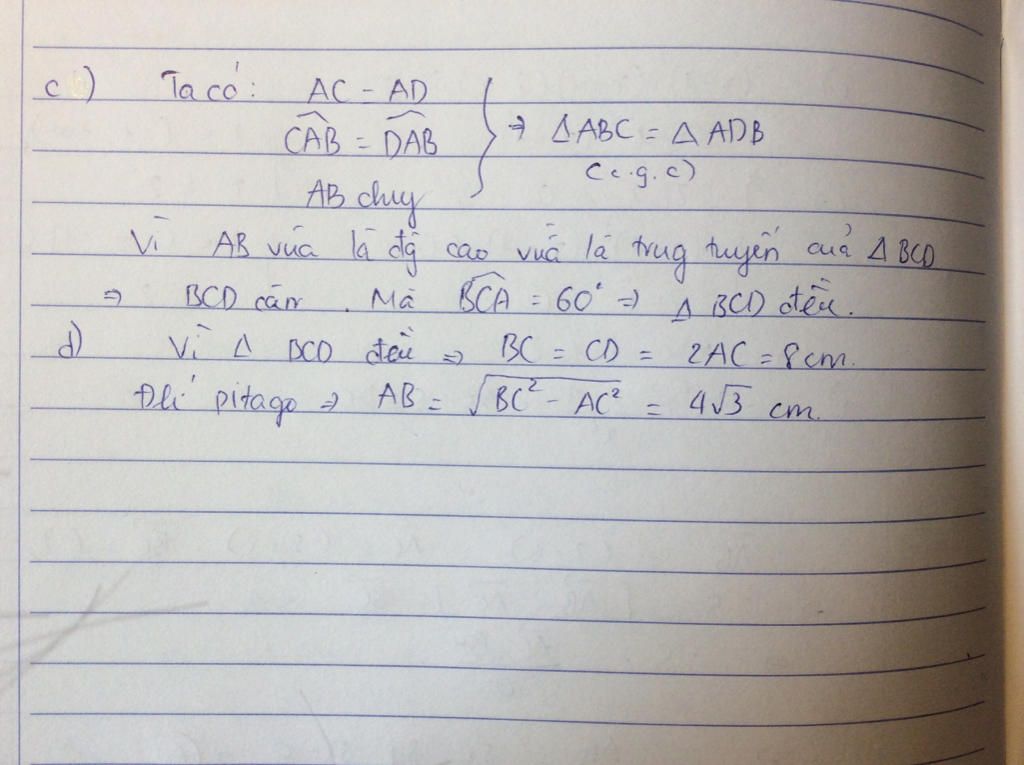 c) Ta có: AC = AD
CAB = DAB } => ΔABC = ΔADB
AB chug (c.g.c)
Vì AB vừa là đg cao vừa là trug tuyến của Δ BCD
=> BCD cân. Mà BCA = 60° => Δ BCD đều.
d) Vì Δ BCD đều => BC = CD = 2AC = 8cm.
Đlí pitago => AB = √(BC² - AC²) = 4√3 cm.